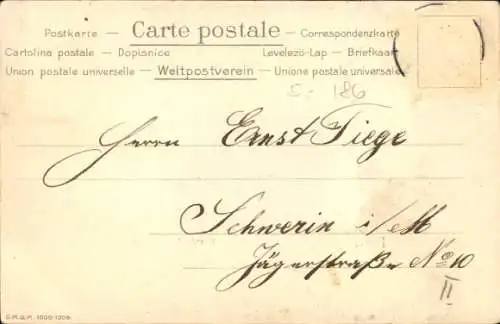 Postkarte – Carte postale – Correspondenzkarte
Cartolina postale – Dopisnice Levelező-Lap – Briefkaart
Union postale universelle – Weltpostverein – Unione postale universale
5.- 186
Herrn Ernst Tiege
Schwerin i/M
Jägerstraße No 10
II